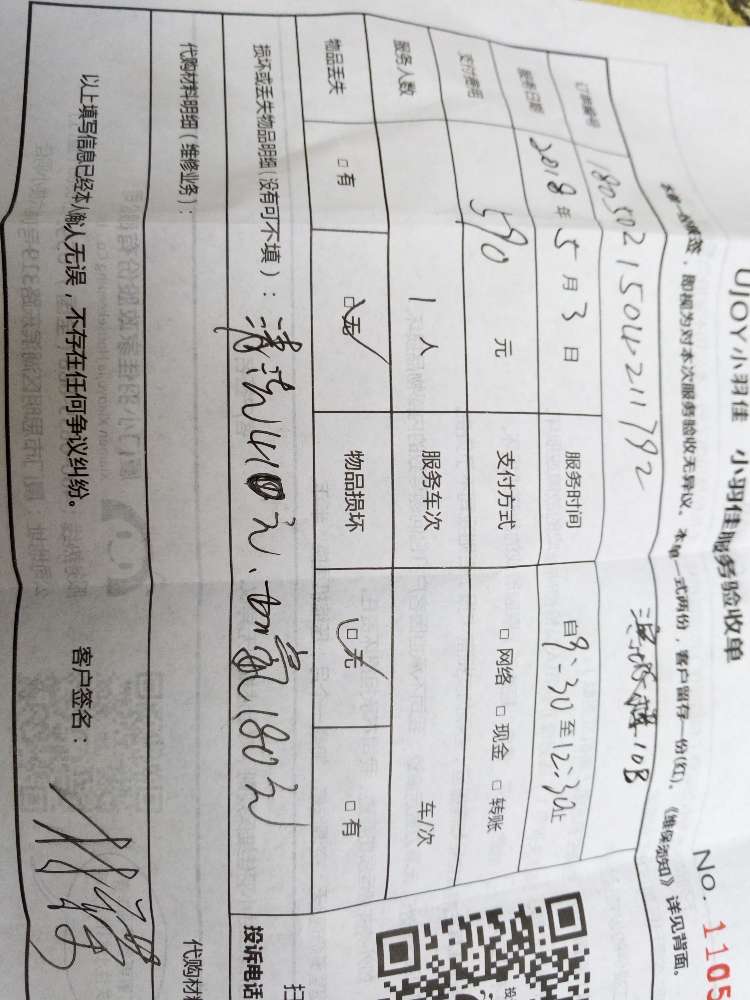 UJOY小羽佳 小羽佳服务验收单
No. 1105
即视为对本次服务验收无异议。本单一式两份，客户留存一份(红)。《维保须知》详见背面。
订单编号 180502150421179 2
服务日期 2018年5月3日 服务时间 自9:30至12:30止
支付费用 590元 支付方式 □网络 □现金 □转账
服务人数 1人 服务车次 车/次
物品丢失 □有 □无 物品损坏 □无 □有
损坏或丢失物品明细(没有可不填)：清洗410元、加氟180元
代购材料明细(维修业务)：
以上填写信息已经本人确认无误，不存在任何争议纠纷。 客户签名：
投诉电话
代购材料